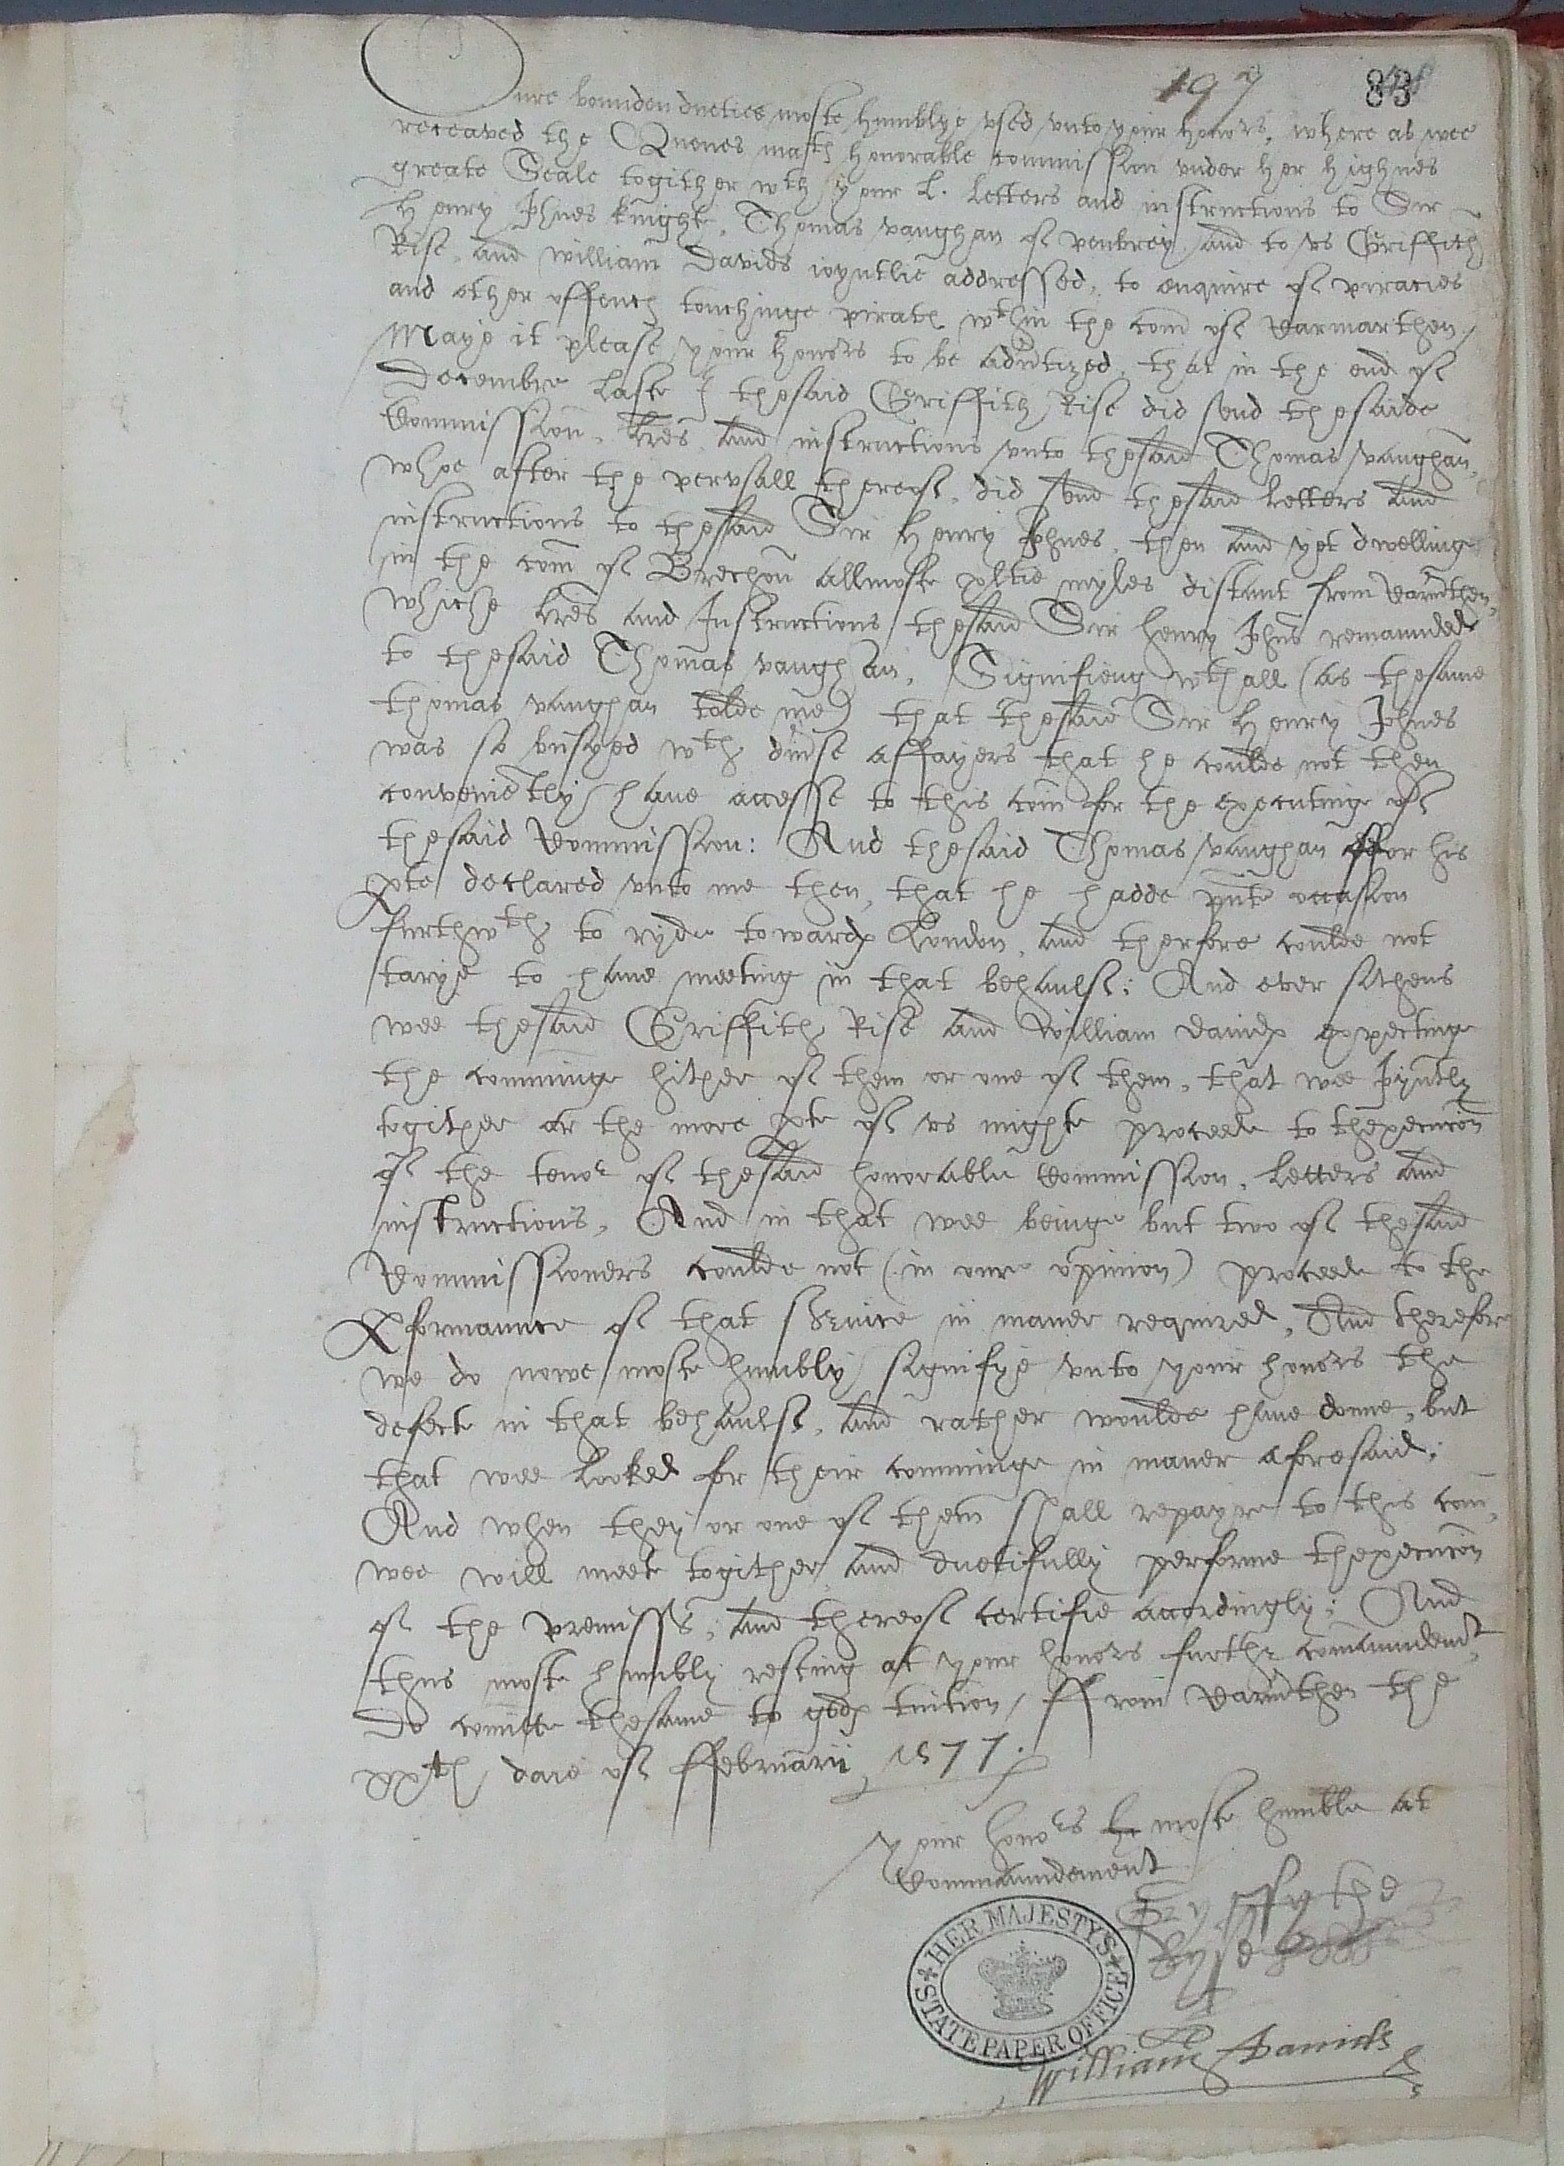 197 83
Oure bounden dueties moste humblye vsed vnto your honors, where as wee
receaved the Quenes mats honorable commission vnder her highnes
greate Seale togither wth your L. letters and instructions to Sir
Henry Jhnes knight, Thomas vaughan of penbrey and to vs Griffith
Rise, and william Davids ioyntlie addressed, to enquire of piracies
and other offences touchinge pirats wthin the com of Carmarthen /
Maye it please your honors to be advtized, that in the end of
Decembre laste I thesaid Griffith Rise did send thesaide
Commission, lres, and instructions vnto thesaid Thomas vaughan,
whoe after the pervsall thereof, did send thesaid letters and
instructions to thesaid Sir Henry Jhnes, then and yet dwellinge
in the com of Brechon allmoste xltie myles distant from Carmthen,
whiche lres and Instructions thesaid Sir henry Jhnes remaunded
to thesaid Thomas vaughan, Signifieng wthall (as thesame
thomas vaughan tolde me) that thesaid Sir Henry Jhnes
was so busyed wth divse affayers that he coulde not then
convenietly have accesse to this com for the executinge of
thesaid Commission: And thesaid Thomas vaughan ffor his
pte declared vnto me then, that he hadde pnte occasion
furthwth to ryde towards London, and therfore coulde not
tarye to have meeting in that behaulf: And ever sithens
wee thesaid Griffith Rise and William Davids expecting
the comminge hither of them or one of them, that wee Joyntly
togither or the more pte of vs might proceede to thexecucion
of the tenor of thesaid honorable Commission, letters and
instructions, And in that wee beinge but two of thesaid
Commissioners coulde not (in oure opinion) proceede to the
pformaunce of that service in maner required, And therefore
we do nowe moste humbly signifye vnto your honors the
defecte in that behaulf, and rather woulde have donne, but
that wee looked for their comminge in maner aforesaid:
And when they or one of them shall repayre to this com,
wee will meete togither and duetifully performe thexecucion
of the premisses, and thereof certifie accordingly: And
thus moste humbly resting at your honors further comaundemt
do comitte thesame to gods tuition / ffrom Carmthen the
xxth daie of ffebruarii 1577.
your honors moste humble at
Commaundement
Gryffythe
Ryse
William Davids
HER MAJESTYS STATE PAPER OFFICE